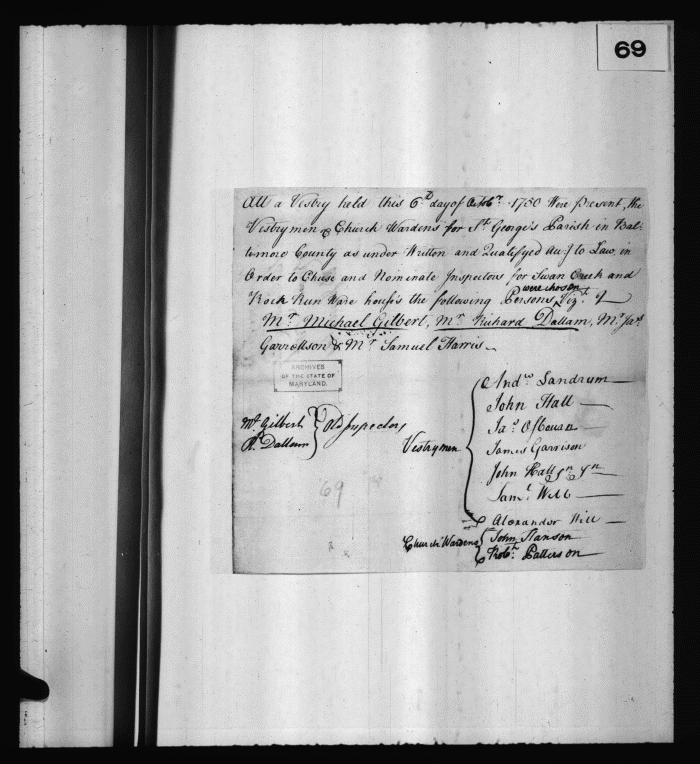 69
Att a Vestry held this 6th day of Octobr. 1750 Were present, the
Vestrymen & Church Wardens for St. George's Parish in Bal-
timore County as under Written and Qualifyed Acc: to Law, in
Order to Chuse and Nominate Inspectors for Swan Creek and
were chosen
Rock Run Ware houses the following Persons, Vizt.
Mr. Michael Gilbert, Mr. Richard Dallam, Mr. Jas.
Garrettson & Mr. Samuel Harris
ARCHIVES
OF THE STATE OF
MARYLAND.
Andw. Landrum
John Hall
Mr. Gilbert
Rd. Dallam
Old Inspectors
Vestrymen
Jas. Osborn
James Garrison
John Hall
Saml. Webb
69
Alexander Hill
Church Wardens
John Hanson
Robt. Patterson